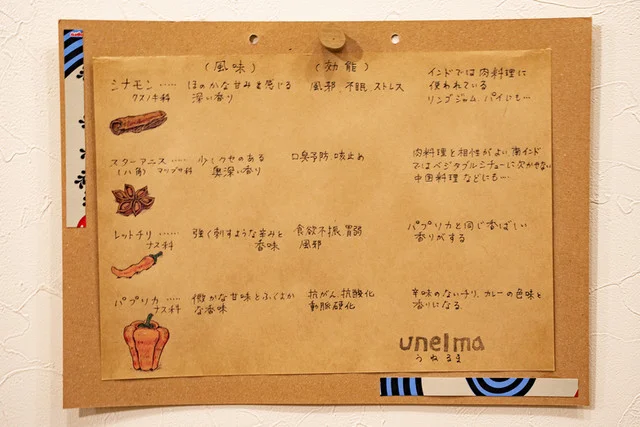 (風味) (効能)
シナモン …… ほのかな甘みを感じる 風邪、不眠、ストレス インドでは肉料理に
クスノキ科 深い香り 使われている
リンゴジャム、パイにも…
スターアニス …… 少しクセのある 口臭予防、咳止め 肉料理と相性がよい。南インド
(八角) マツブサ科 奥深い香り ではベジタブルシチューに欠かせない
中国料理などにも…
レットチリ …… 強く刺すような辛みと 食欲不振、胃弱 パプリカと同じ香ばしい
ナス科 香味 風邪 香りがする
パプリカ …… 微かな甘味とふくよか 抗がん、抗酸化 辛味のないチリ、カレーの色味と
ナス科 な香味 動脈硬化 香りになる。
unelma
うねるま